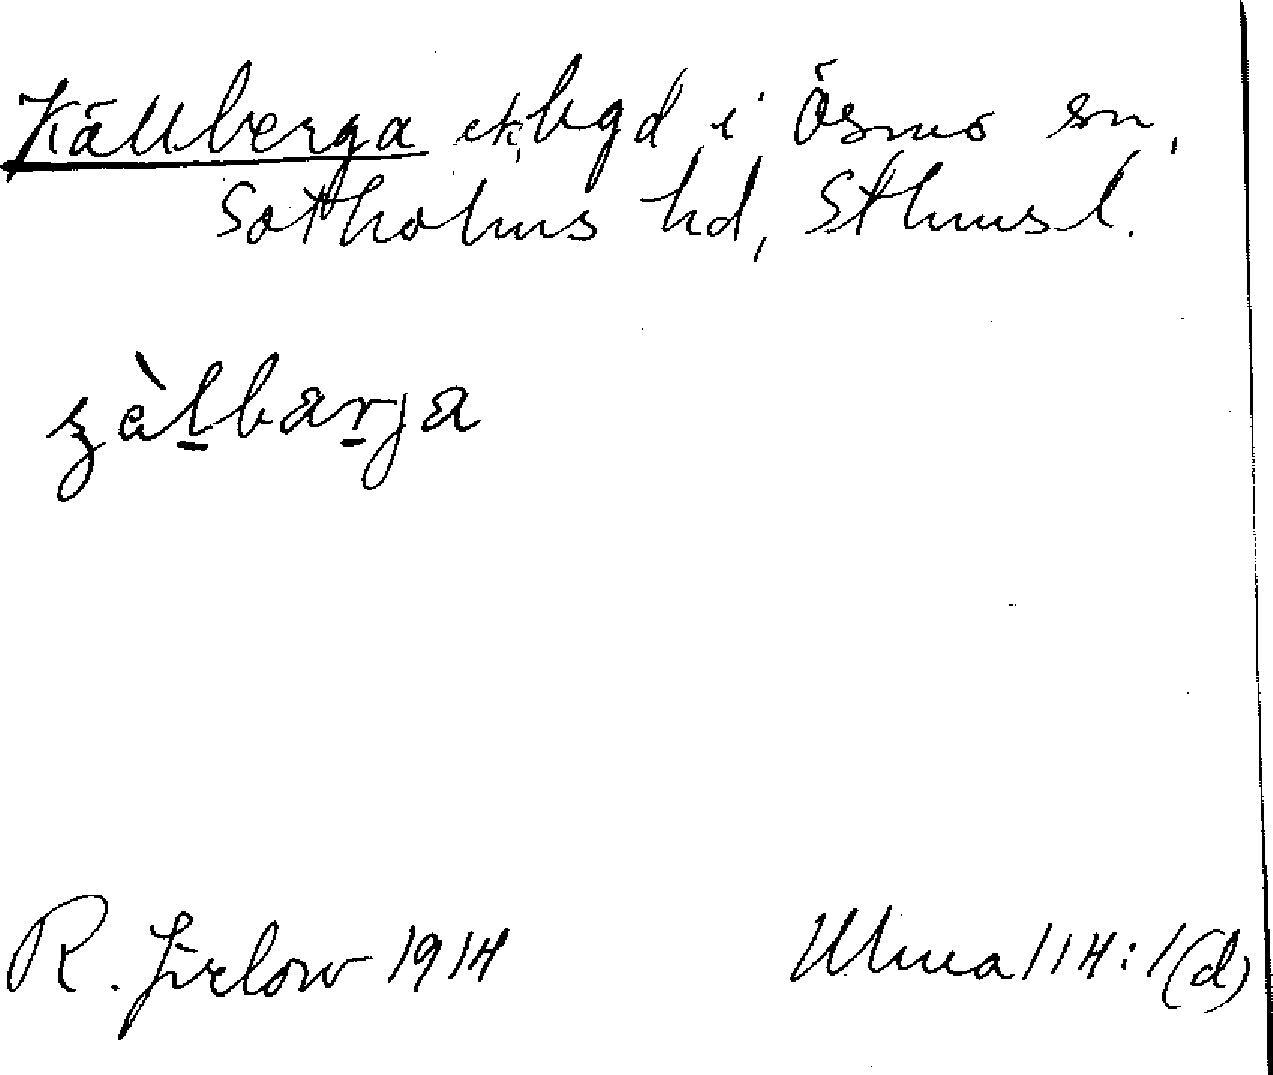 Källberga ek, bgd i Ösmo sn,
Sotholms hd, Sthmsl.
R. Jirlow 1914
Ulma 114:1(d)